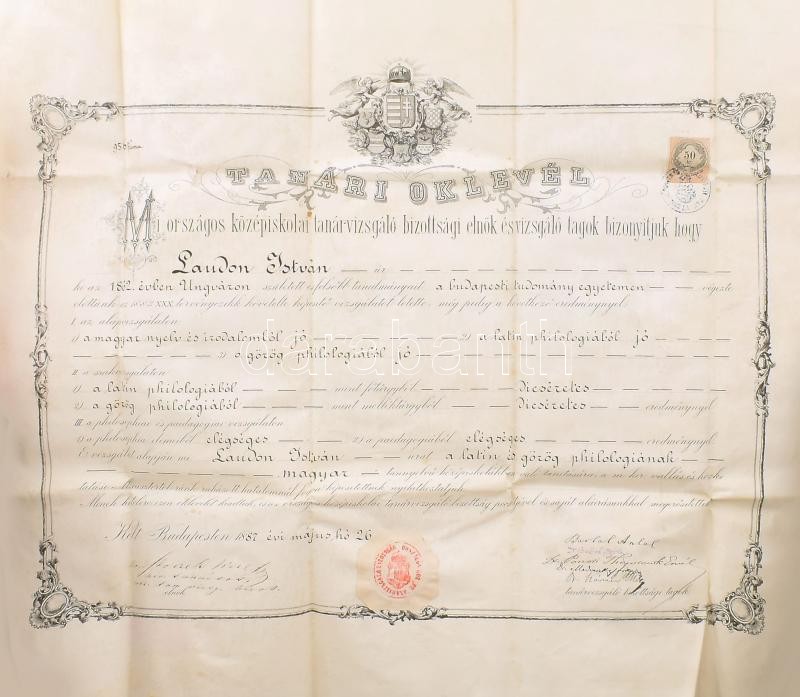 50
TANÁRI OKLEVÉL
Mi országos középiskolai tanár-vizsgáló bizottsági elnök és vizsgáló tagok bizonyitjuk hogy
Laudon István úr
ki az évben Ungváron született és felsőbb tanulmányait a budapesti tudomány egyetemen végezte
előttünk az 1883 XXX törvényczikk követelte képesítő vizsgálatot letette, még pedig a következő eredménynyel.
I. az alapvizsgálaton:
1) a magyar nyelv és irodalomból jó 2) a latin philologiából jó
3) a görög philologiából jó
II. a szakvizsgálaton:
1). a latin philologiából mint főtárgyból Dicséretes
2). a görög philologiából mint melléktárgyból Dicséretes eredménynyel.
III. a philosophiai és paedagogiai vizsgálaton
1) a philosophia elemeiből elégséges 2) a paedagogiából elégséges eredménynyel.
E vizsgálat alapján mi Laudon István urat a latin és görög philologiának
magyar tannyelvű középiskolákban való tanítására, a m. kir. vallás és közok
tatási Ministertől reánk ruházott hatalomnál fogva képesítettnek nyilvánítjuk.
Minek hiteléül ezen oklevelet kiadtuk, és az országos középiskolai tanárvizsgáló bizottság pecsétjével és saját aláirásunkkal megerősítettük
Kelt Budapesten 1887 évi május hó 26
elnök
Bartal Antal
tanárvizsgáló bizottsági tagok
darabanth